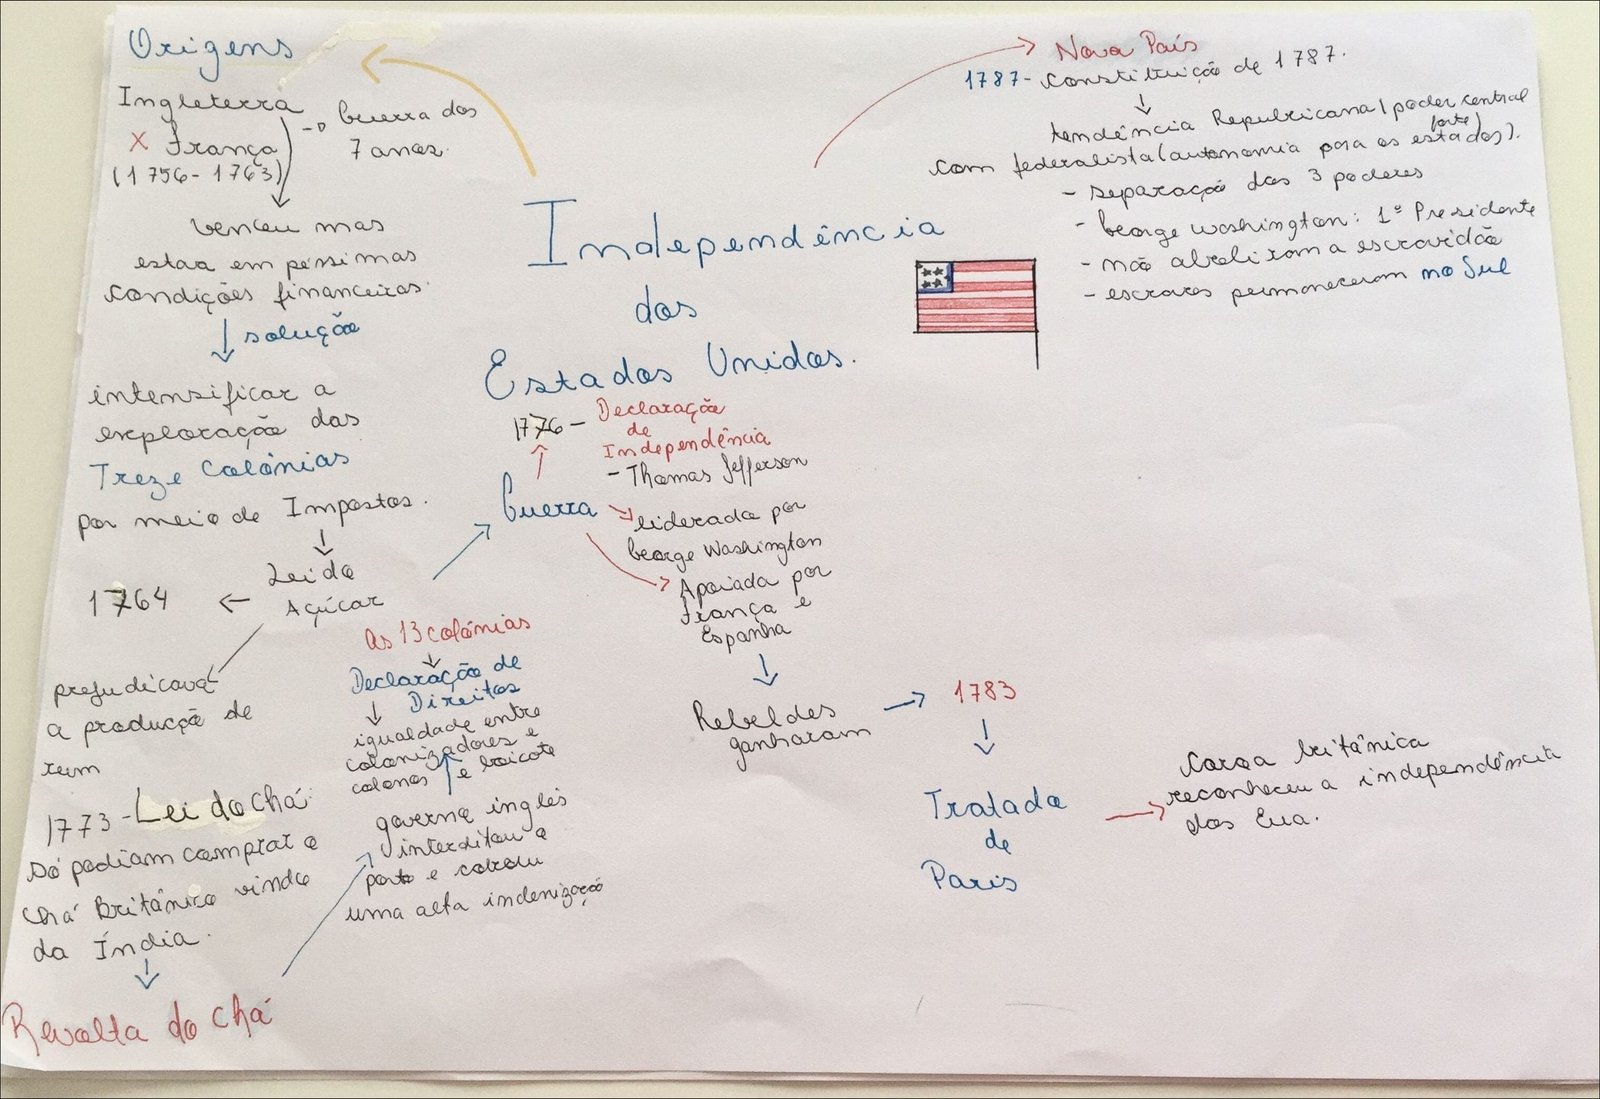 Origens
Ingleterra
X França
(1756-1763)
Guerra dos
7 anos.
venceu mas
estava em péssimas
condições financeiras.
solução
intensificar a
exploração das
Treze Colônias
por meio de Impostos.
Lei do
Açúcar
1764
prejudicava
a producção de
rum
1773 - Lei do chá:
só podiam comprar o
chá Britânico vindo
da Índia.
Revolta do chá
governo inglês
interditou o
porto e cobrou
uma alta indenização
As 13 colônias
Declaração de
Direitos
igualdade entre
colonizadores e
colonos e boicote
Independência
dos
Estados Unidos.
1776 - Declaração
de
Independência
- Thomas Jefferson
Guerra
liderada por
George Washington
Apoiada por
França e
Espanha
Rebeldes
ganharam
1783
Tratado
de
Paris
Coroa britânica
reconheceu a independência
dos Eua.
Novo País
1787 - Constituição de 1787.
tendência Republicana (poder central
forte)
com federalista (autonomia para os estados).
- separação dos 3 poderes
- George Washington: 1º Presidente
- não aboliram a escravidão
- escravos permaneceram no Sul